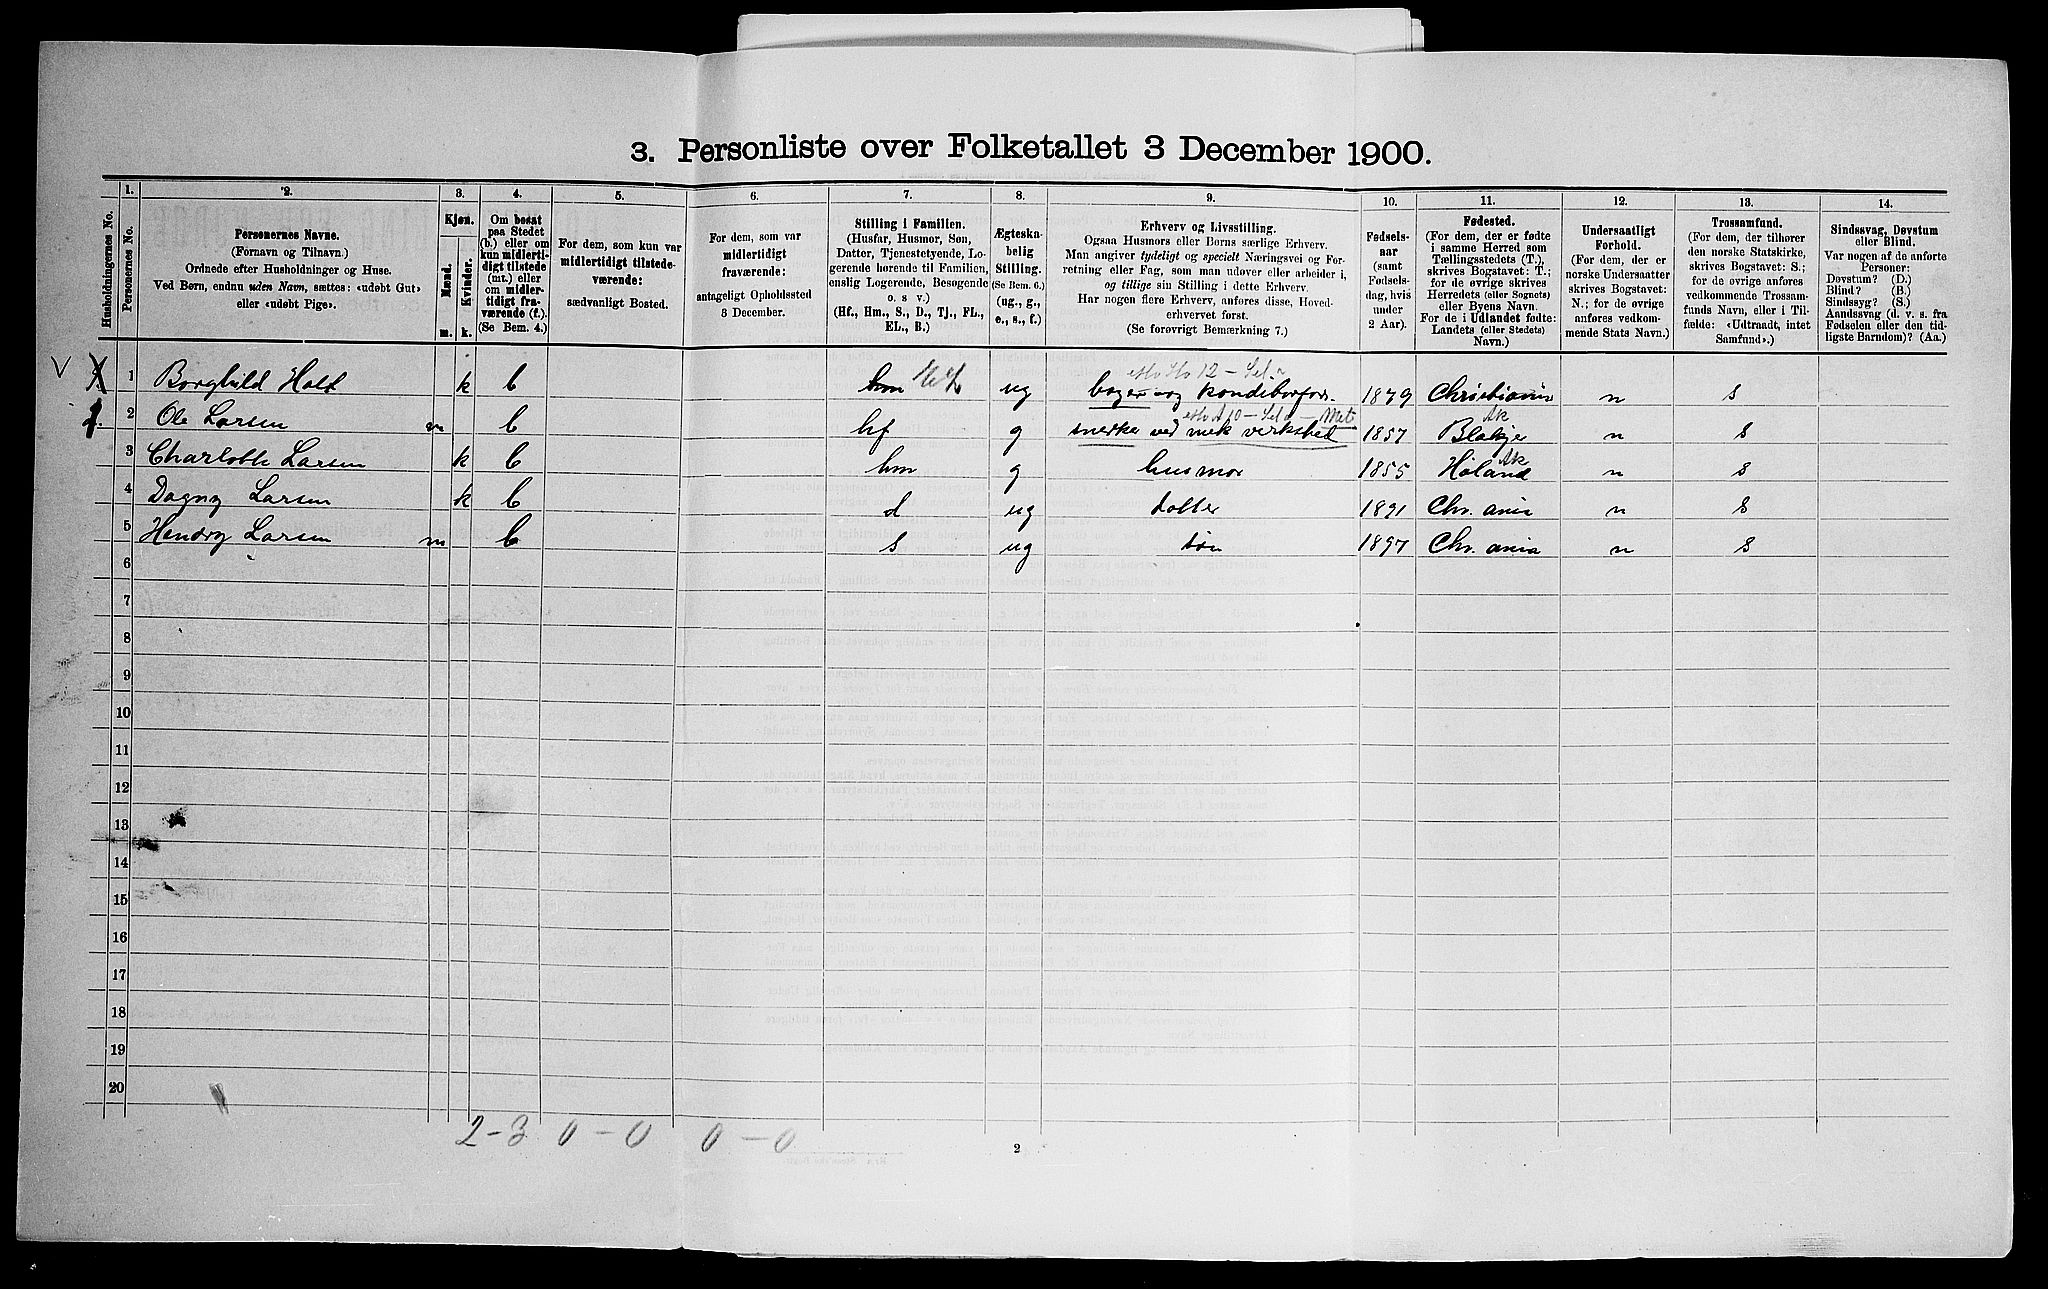 3. Personliste over Folketallet 3 December 1900.
Husholdningernes No.
1.
Personernes No.
2.
Personernes Navne.
(Fornavn og Tilnavn.)
Ordnede efter Husholdninger og Huse.
Ved Børn, endnu uden Navn, sættes: «udøbt Gut»
eller «udøbt Pige».
3.
Kjøn.
Mænd.
Kvinder.
m. k.
4.
Om bosat
paa Stedet
(b.) eller om
kun midlerti-
digt tilstede
(mt.) eller
om midler-
tidigt fra-
værende (f.).
(Se Bem. 4.)
5.
For dem, som kun var
midlertidigt tilstede-
værende:
sædvanligt Bosted.
6.
For dem, som var
midlertidigt
fraværende:
antageligt Opholdssted
3 December.
7.
Stilling i Familien.
(Husfar, Husmor, Søn,
Datter, Tjenestetyende, Lo-
gerende hørende til Familien,
enslig Logerende, Besøgende
o. s v.)
(Hf., Hm., S., D., Tj., FL.,
EL., B.)
8.
Ægteska-
belig
Stilling.
(Se Bem. 6.)
(ug., g.,
e., s., f.)
9.
Erhverv og Livsstilling.
Ogsaa Husmors eller Børns særlige Erhverv.
Man angiver tydeligt og specielt Næringsvei og For-
retning eller Fag, som man udøver eller arbeider i,
og tillige sin Stilling i dette Erhverv.
Har nogen flere Erhverv, anføres disse, Hoved-
erhvervet først.
(Se forøvrigt Bemærkning 7.)
10.
Fødsels-
aar
(samt
Fødsels-
dag, hvis
under
2 Aar).
11.
Fødested.
(For dem, der er fødte
i samme Herred som
Tællingsstedets (T.),
skrives Bogstavet: T.;
for de øvrige skrives
Herredets (eller Sognets)
eller Byens Navn.
For de i Udlandet fødte:
Landets (eller Stedets)
Navn.)
12.
Undersaatligt
Forhold.
(For dem, der er
norske Undersaatter
skrives Bogstavet:
N.; for de øvrige
anføres vedkom-
mende Stats Navn.)
13.
Trossamfund.
(For dem, der tilhører
den norske Statskirke,
skrives Bogstavet: S.;
for de øvrige anføres
vedkommende Trossam-
funds Navn, eller i Til-
fælde: «Udtraadt, intet
Samfund».)
14.
Sindssvag, Døvstum
eller Blind.
Var nogen af de anførte
Personer:
Døvstum? (D.)
Blind? (B.)
Sindssyg? (S.)
Aandssvag (d. v. s. fra
Fødselen eller den tid-
ligste Barndom)? (Aa.)
1 Borghild Holt k b hm ug bager og 1879 Christiania n S
2 Ole Larsen m b hf g ved mek verksted 1857 Blakjer Ak n S
3 Charlotte Larsen k b hm g husmor 1855 Høland Ak n S
4 Dagny Larsen k b d ug datter 1891 Chr. ania n S
5 Hendry Larsen m b s ug søn 1897 Chr. ania n S
6
7
8
9
10
11
12
13
14
15
16
17
18
19
20
2-3 0-0 0-0
2